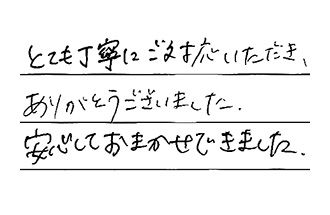 とても丁寧にご対応いただき、
ありがとうございました.
安心しておまかせできました.